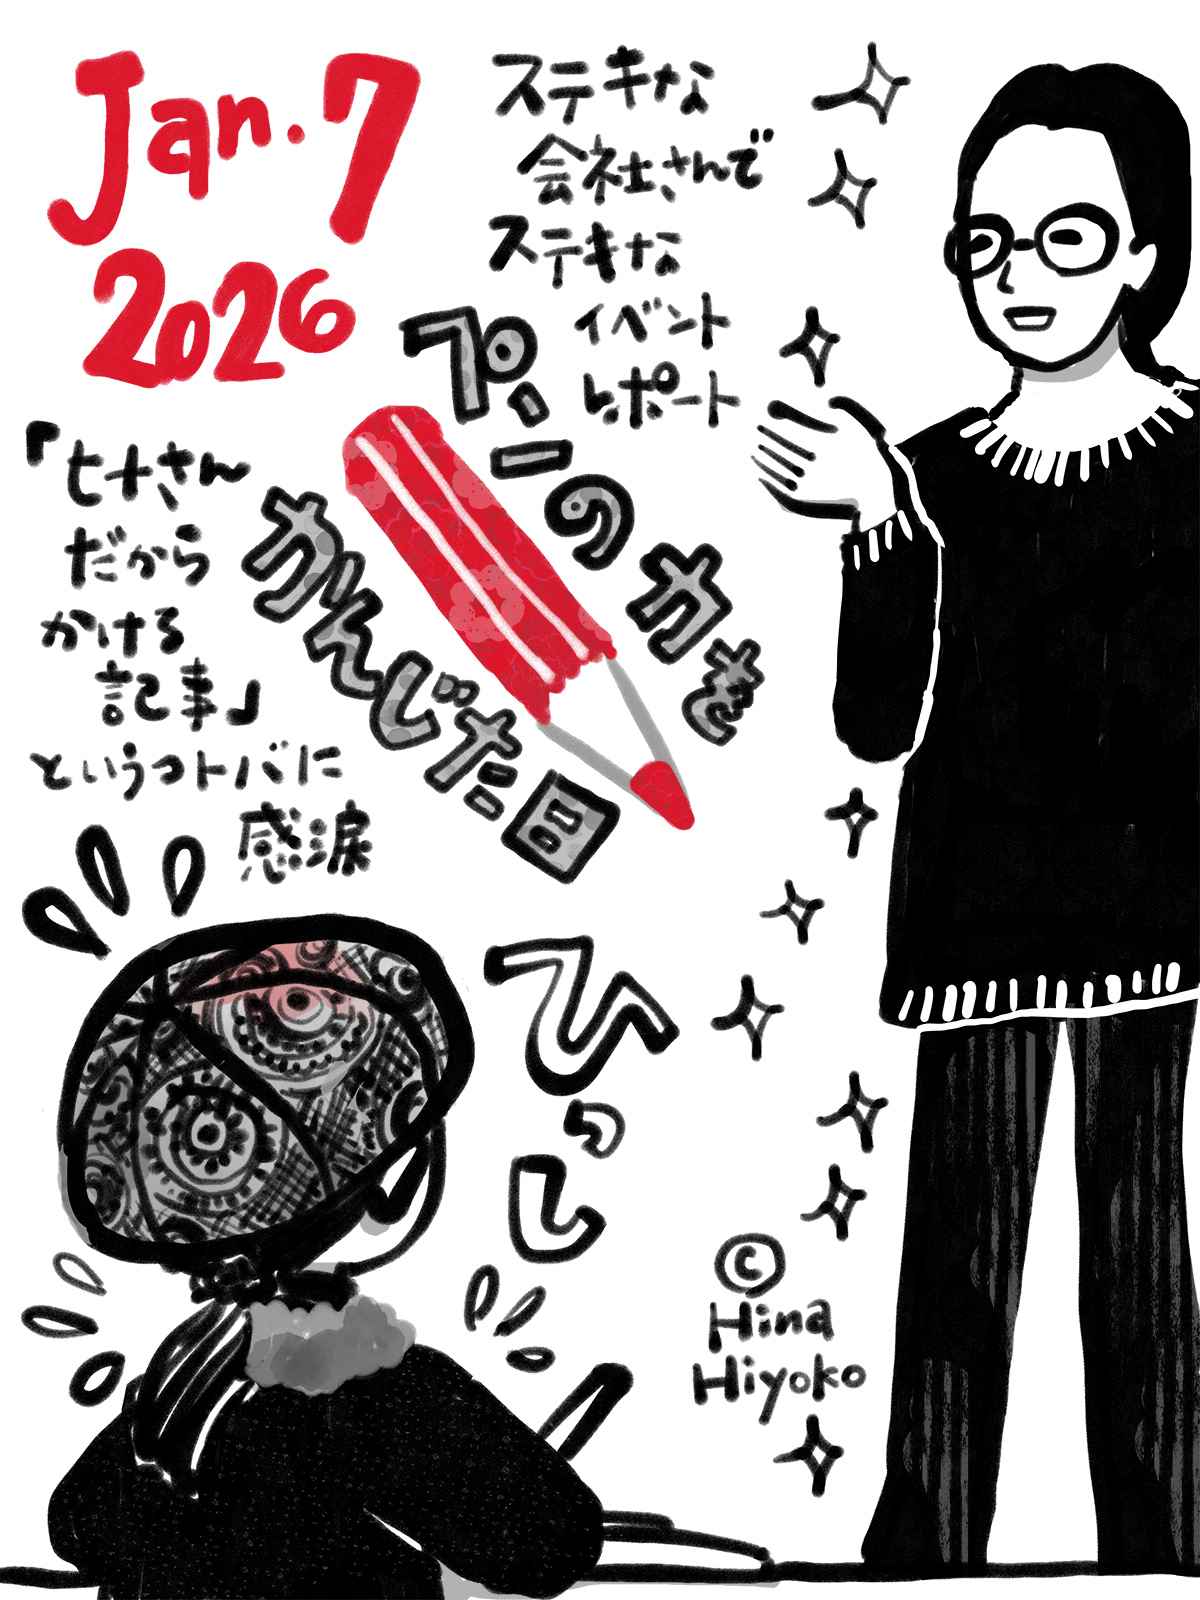 Jan. 7
2026
ステキな
会社さんで
ステキな
イベント
レポート
ペンの力を
かんじた日
「ヒナさん
だから
かける
記事」
というコトバに
感涙
ひっし
©
Hina
Hiyoko